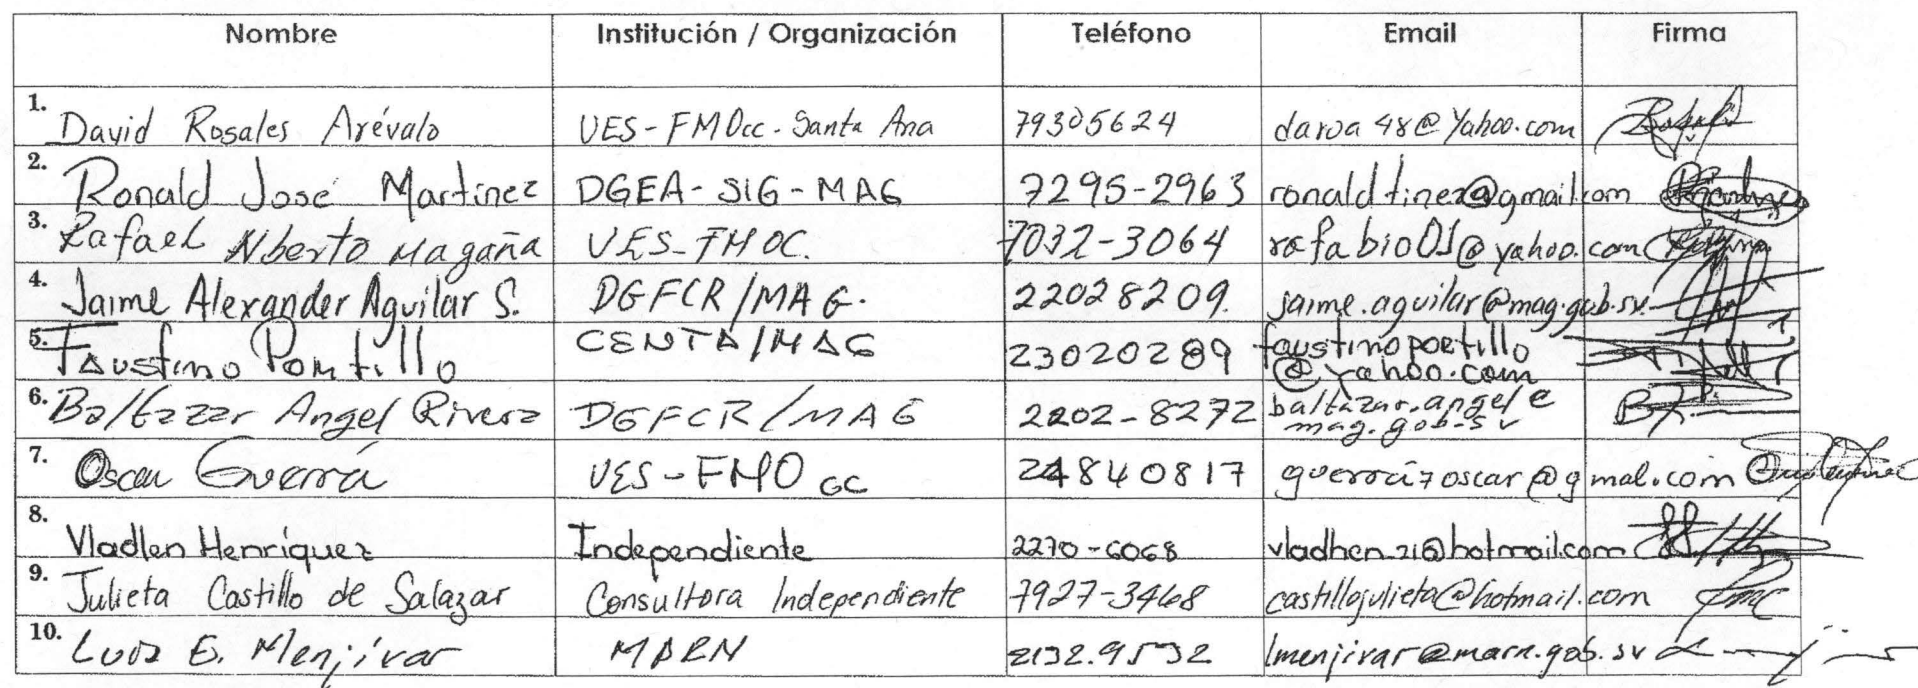 Nombre Institución / Organización Teléfono Email Firma
1. David Rosales Arévalo UES-FMOcc. Santa Ana 79305624 daroa48@Yahoo.com
2. Ronald José Martinez DGEA-SIG-MAG 7295-2963 ronaldtinez@gmail.com
3. Rafael Nberto Magaña UES-FMOC. 7032-3064 rafabio01@yahoo.com
4. Jaime Alexander Aguilar S. DGFCR/MAG. 22028209. jaime.aguilar@mag.gob.sv.
5. Faustino Portillo CENTA/MAG 23020289 faustinoportillo
@yahoo.com
6. Baltazar Angel Rivera DGFCR/MAG 2202-8272 baltazar.angel@
mag.gob.sv
7. Oscar Guerra UES-FMOcc 24840817 guerra7oscar@gmal.com
8. Vladlen Henríquez Independiente 2270-6068 vladhen21@hotmail.com
9. Julieta Castillo de Salazar Consultora Independiente 7927-3468 castillojulieta@hotmail.com
10. Luis E. Menjivar MARN 2132.9532 lmenjivar@marn.gob.sv